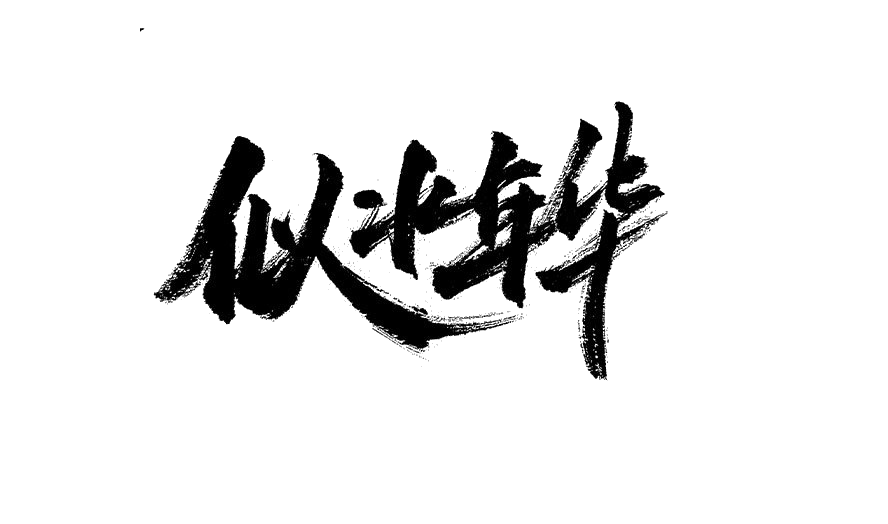 似水年华